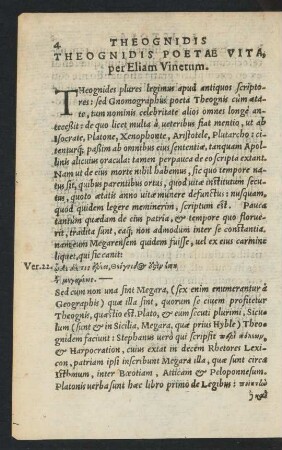 4 THEOGNIDIS
THEOGNIDIS POETAE VITA,
per Eliam Vinetum.
THeognides plures legimus apud antiquos scripto-
res: sed Gnomographus poëta Theognis cùm æta-
te, tum nominis celebritate alios omnes longè an-
tecessit: de quo licet multa à ueteribus fiat mentio, ut ab
Isocrate, Platone, Xenophonte, Aristotele, Plutarcho: ci-
tenturq́; passim ab omnibus eius sententiæ, tanquam Apol-
linis alicuius oracula: tamen perpauca de eo scripta extant.
Nam ut de eius morte nihil habemus, sic quo tempore na-
tus sit, quibus parentibus ortus, quod uitæ institutum secu-
tus, quoto ætatis anno uitæ munere defunctus: nusquam,
quod quidem legere meminerim, scriptum est. Pauca
tantum quædam de eius patria, & tempore quo florue-
rit, tradita sunt, eaq́; non admodum inter se constantia.
nanque eum Megarensem quidem fuisse, uel ex eius carmine
liquet, qui sic canit:
Ver. 22. ὧδε δὲ πᾶς τις ἐρεῖ, Θεύγνιδός ἐστιν ἔπη
τοῦ μεγαρέως.
Sed cum non una sint Megara, (sex enim enumerantur à
Geographis) quæ illa sint, quorum se ciuem profitetur
Theognis, quæstio est. Plato, & eum secuti plurimi, Sicu-
lum (sunt & in Sicilia, Megara, quæ prius Hyble) Theo-
gnidem faciunt: Stephanus uerò qui scripsit περὶ πόλεων,
& Harpocration, cuius extat in decem Rhetores Lexi-
con, patriam ipsi inscribunt Megara illa, quæ sunt circa
Isthmum, inter Bœotiam, Atticam & Peloponnesum.
Platonis uerba sunt hæc libro primo de Legibus: ποιητὴν